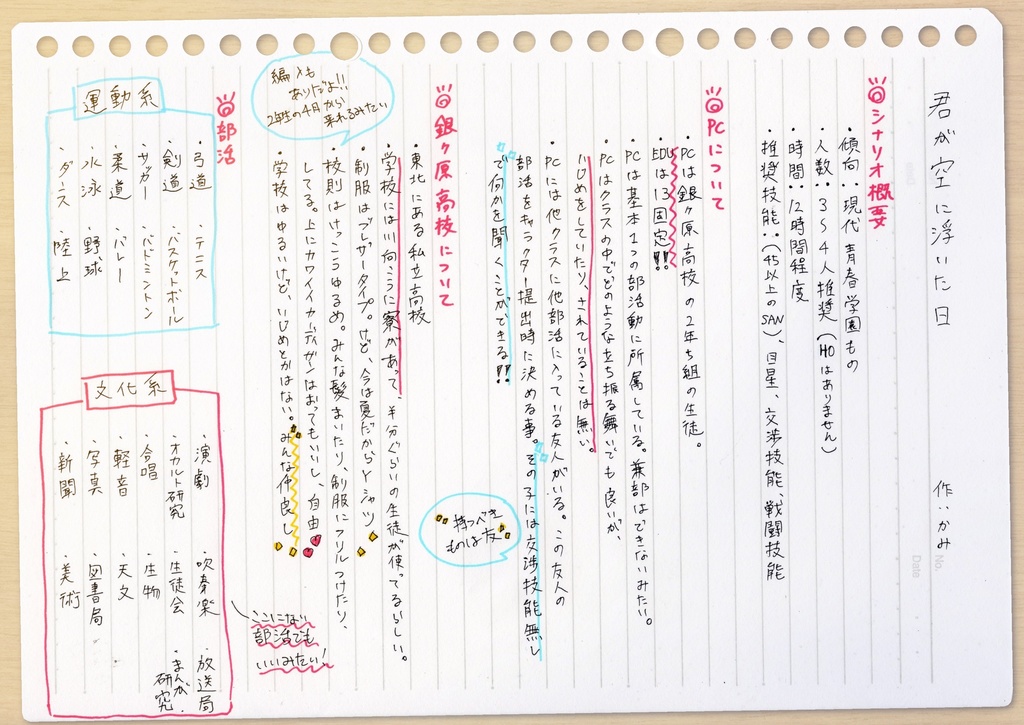 君が空に浮いた日
作：いかみ
No.
Date
シナリオ概要
・傾向：現代青春学園もの
・人数：3〜4人推奨（HOはありません）
・時間：12時間程度
・推奨技能：（45以上のSAN）、目星、交渉技能、戦闘技能
PCについて
・PCは銀ヶ原高校の2年ち組の生徒。
EDUは13固定!!
・PCは基本1つの部活動に所属している。兼部はできないみたい。
・PCはクラスの中でどのような立ち振る舞いでも良いが、
いじめをしていたり、されていることは無い。
・PCには他クラスに他部活に入っている友人がいる。この友人の
部活をキャラクター提出時に決める事。その子には交渉技能無し
で何かを聞くことができる!!
持つべき
ものは友
銀ヶ原高校について
・東北にある私立高校
・学校には川向こうに寮があって、半分ぐらいの生徒が使ってるらしい。
・制服はブレザータイプ。けど、今は夏だからYシャツ
・校則はけっこうゆるめ。みんな髪まいたり、制服にフリルつけたり、
してる。上にカワイイカーディガンはおってもいいし、自由
・学校はゆるいけど、いじめとかはない。みんな仲良し
編入も
ありだよ!!
2年生の4月から
来れるみたい
部活
運動系
・弓道 ・テニス
・剣道 ・バスケットボール
・サッカー ・バドミントン
・柔道 ・バレー
・水泳 ・野球
・ダンス ・陸上
文化系
・演劇 ・吹奏楽 ・放送局
・オカルト研究 ・生徒会 ・まんが研究
・合唱 ・生物
・軽音 ・天文
・写真 ・図書局
・新聞 ・美術
ここにない
部活でも
いいみたい！